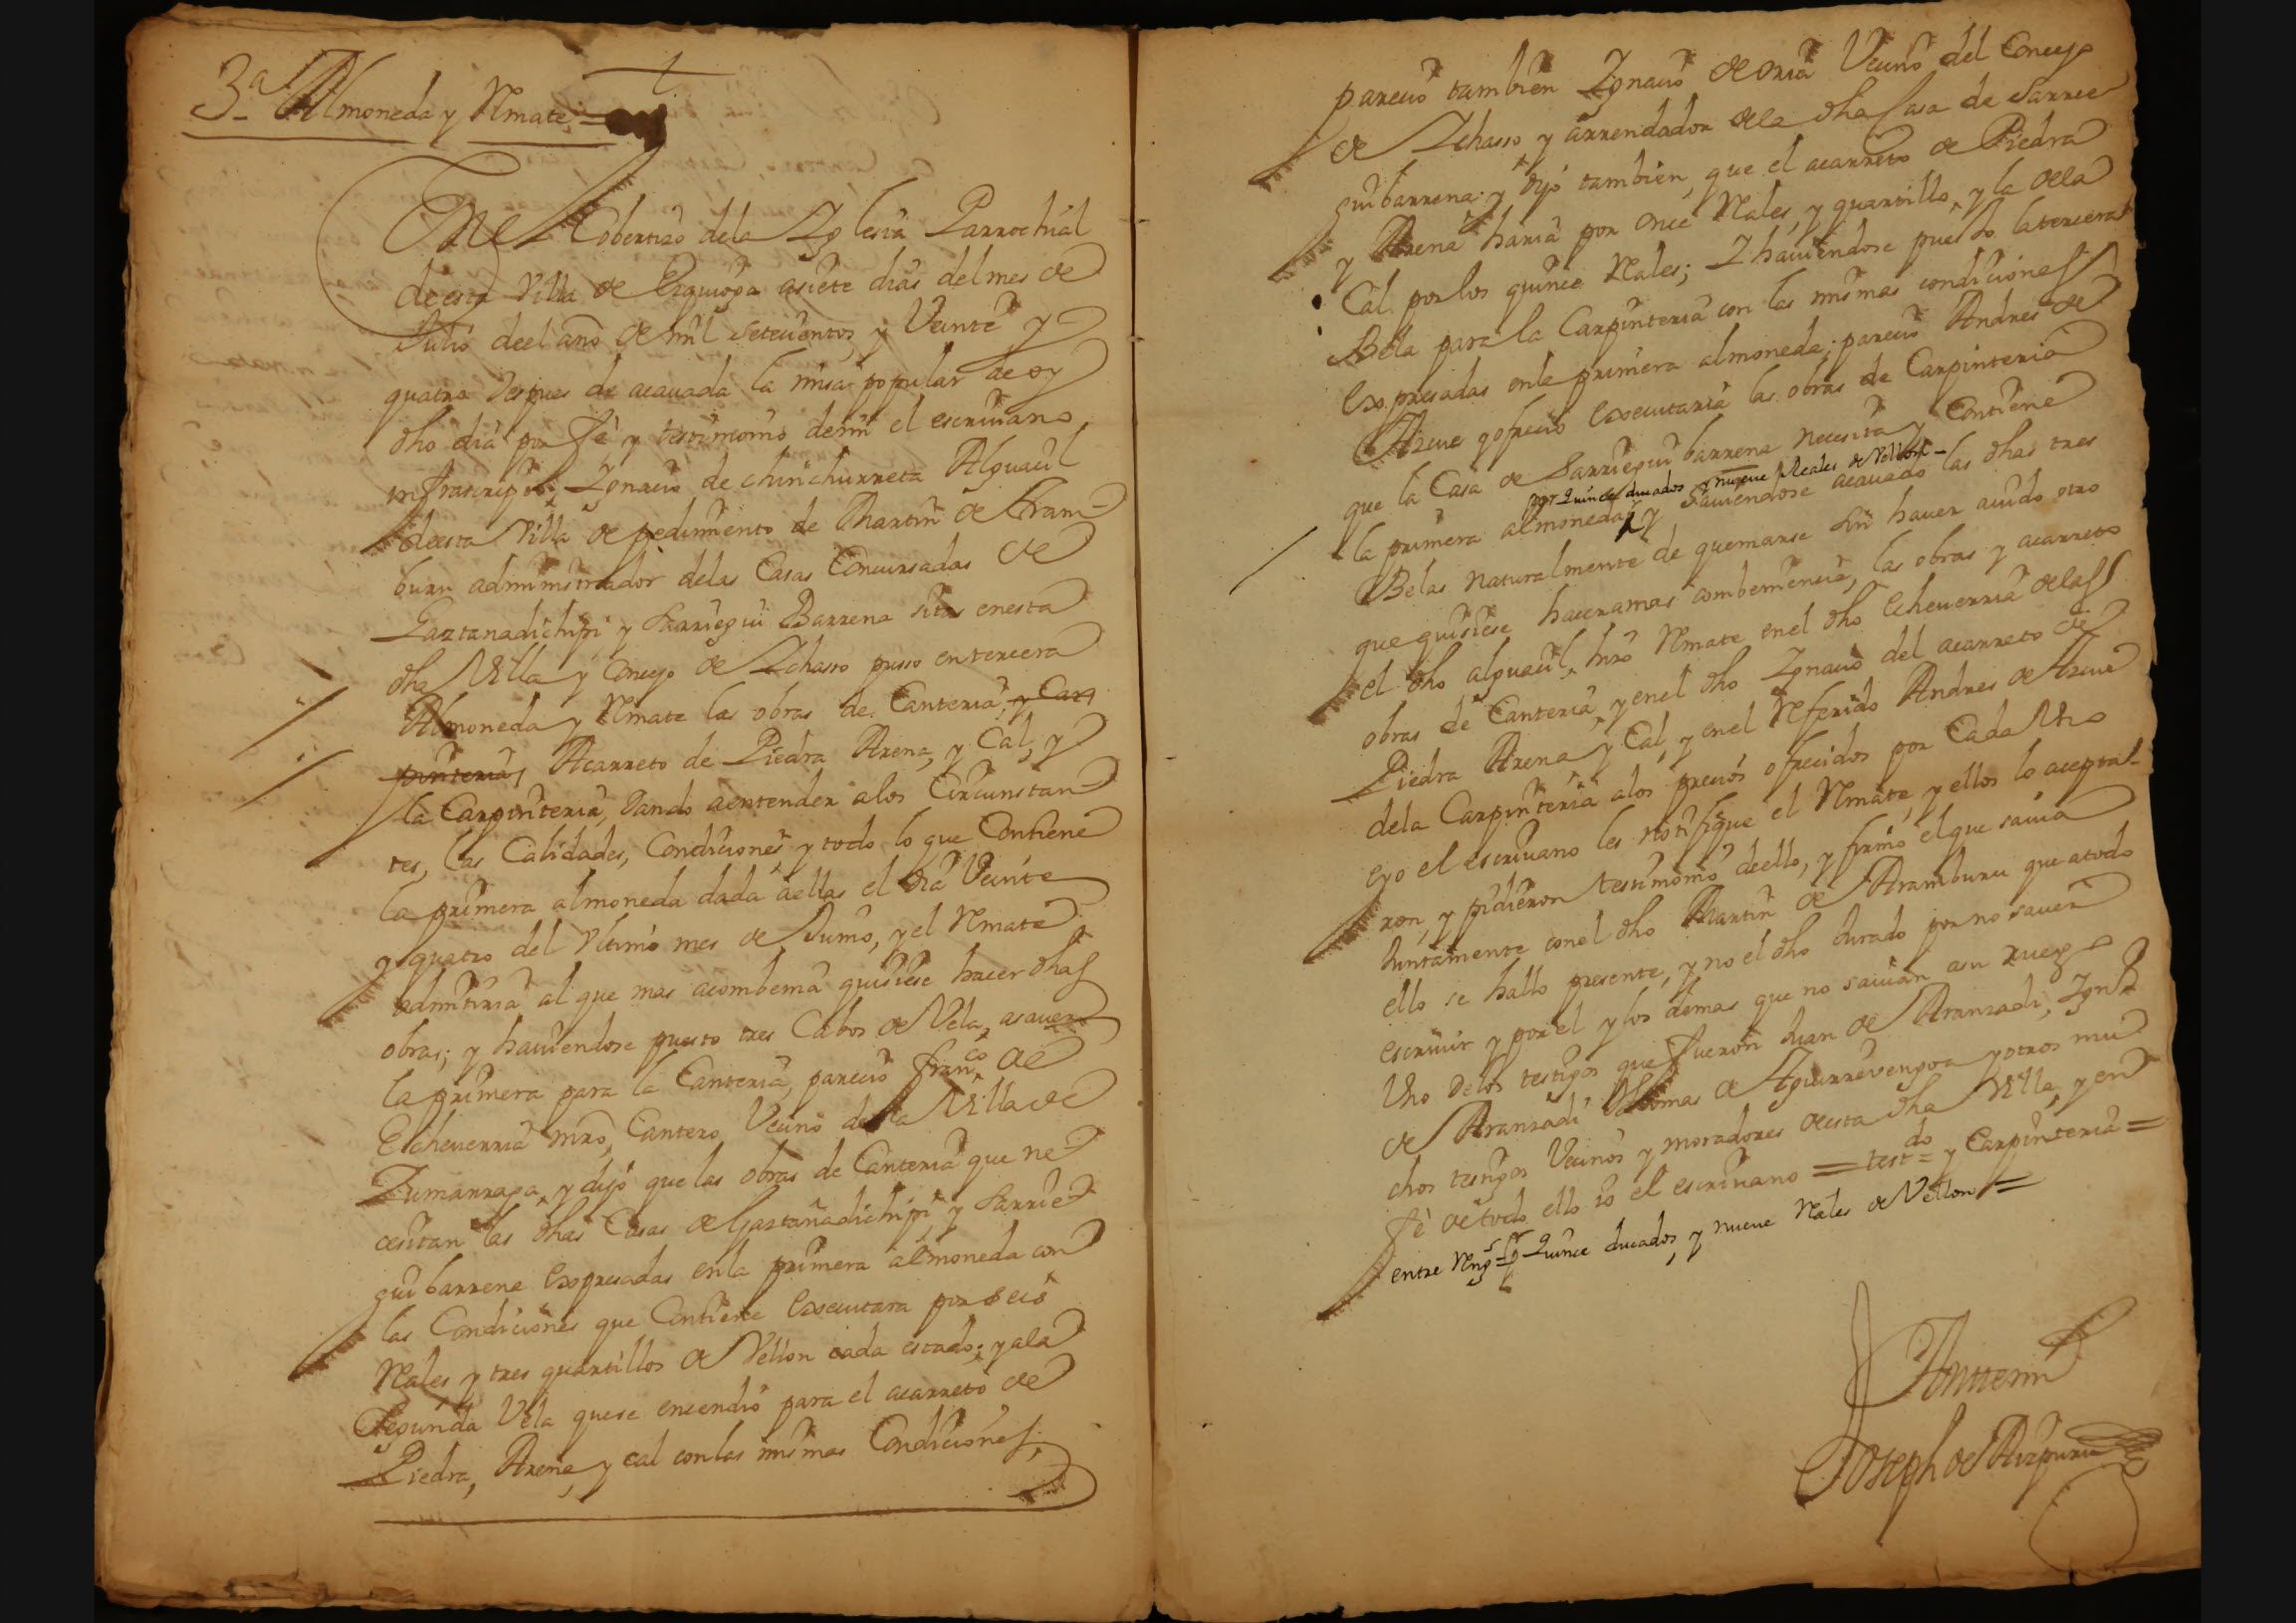 3.ª Almoneda y Rmate =
En el Cobertizo dela Iglesia Parrochial
de esta Villa de Ezquioga asiete dias del mes de
Julio deel año de mil setecientos, y Veinte y
quatro Despues de acauada la misa popular de oy
dho dia por fè y testimonio demi el escriuano
infrascripto, Ignacio de chinchurreta Alguacil
deesta Villa de pedimiento de Martin de Aram-
buru administrador delas Casas Concursadas de
Gaztanadichipi y Sarriegui Barrena sitas enesta
dha Villa y Concejo de Ichasso pusso entercera
Almoneda y Rmate las obras de Canteria, y Car
pinteria, Acarreto de Piedra Arena, y Cal, y
la Carpinteria, Dando aentender alos Circunstan-
tes, las Calidades, Condiciones, y todo lo que Contiene
la primera almoneda dada aellas el dia Veinte
y quatro del Vltimo mes de Junio, y el Rmate
admitiria al que mas acombenia quisiese hacer dhas
obras; y hauiendose puesto tres Cabos de Vela, asauer
la primera para la Canteria, parecio fran.co de
Echeuerria mro, Cantero Vecino dela Villa de
Zumarraga, y dijo que las obras de Canteria que ne-
cesitan las dhas Casas de Gaztañadichipi, y Sarrie-
gui barrena Expresadas enla primera almoneda con
las Condiciones que Contiene Executara por seis
Rales y tres quartillos de Vellon cada estado; y ala
Segunda Vela quese encendio para el acarreto de
Piedra, Arena, y cal conlas mismas Condiciones,
parecio tambien Ignacio de oria Vecino del Concejo
de Ichasso y arrendador dela dha Casa de Sarrie
guibarrena: y dijo tambien, que el acarreto de Piedra
y Arena haria por once Rales, y quartillo, y la dela
Cal por los quince Rales; I hauiendose puesto latercera
Bela para la Carpinteria con las mismas condiciones
Expresadas enla primera almoneda; parecio Andres de
Azcue y ofrecio Executaria las obras de Carpinteria
que la Casa de Sarriegui barrena necesita y Contiene
por Quince ducados y nueue Reales de Vellon -
la primera almoneda; y Hauiendose acauado las dhas tres
Belas naturalmente de quemarse sin hauer auido otro
que quisiese hacer amas combeniencia, las obras y acarreto
el dho alguacil, hizo Rmate enel dho Echeuerria delas
obras de Canteria, y enel dho Ignacio del acarreto de
Piedra Arena y Cal, y enel Referido Andres de Azcue
dela Carpinteria alos precios ofrecidos por Cada Vno
eyo el escriuano les notifique el Rmate, y ellos lo acepta-
ron, y pidieron testimonio deello, y firmo elque sauia
Juntamente conel dho Martin de Aramburu que atodo
ello se hallo presente, y no el dho Jurado por no sauer
escriuir y por el y los demas que no sauian asu ruego
Vno delos testigos que fueron Juan de Aranzadi, Ign.o
de Aranzadi Thomas de Aguirreuengoa y otros mu
chos testigos Vecinos y moradores deesta dha Villa, y en
fè detodo ello io el escriuano = test.do = y Carpinteria =
entre Rng.s = por Quince ducados, y nueue Rales de Vellon =
Antemi
Joseph de Aizpuru